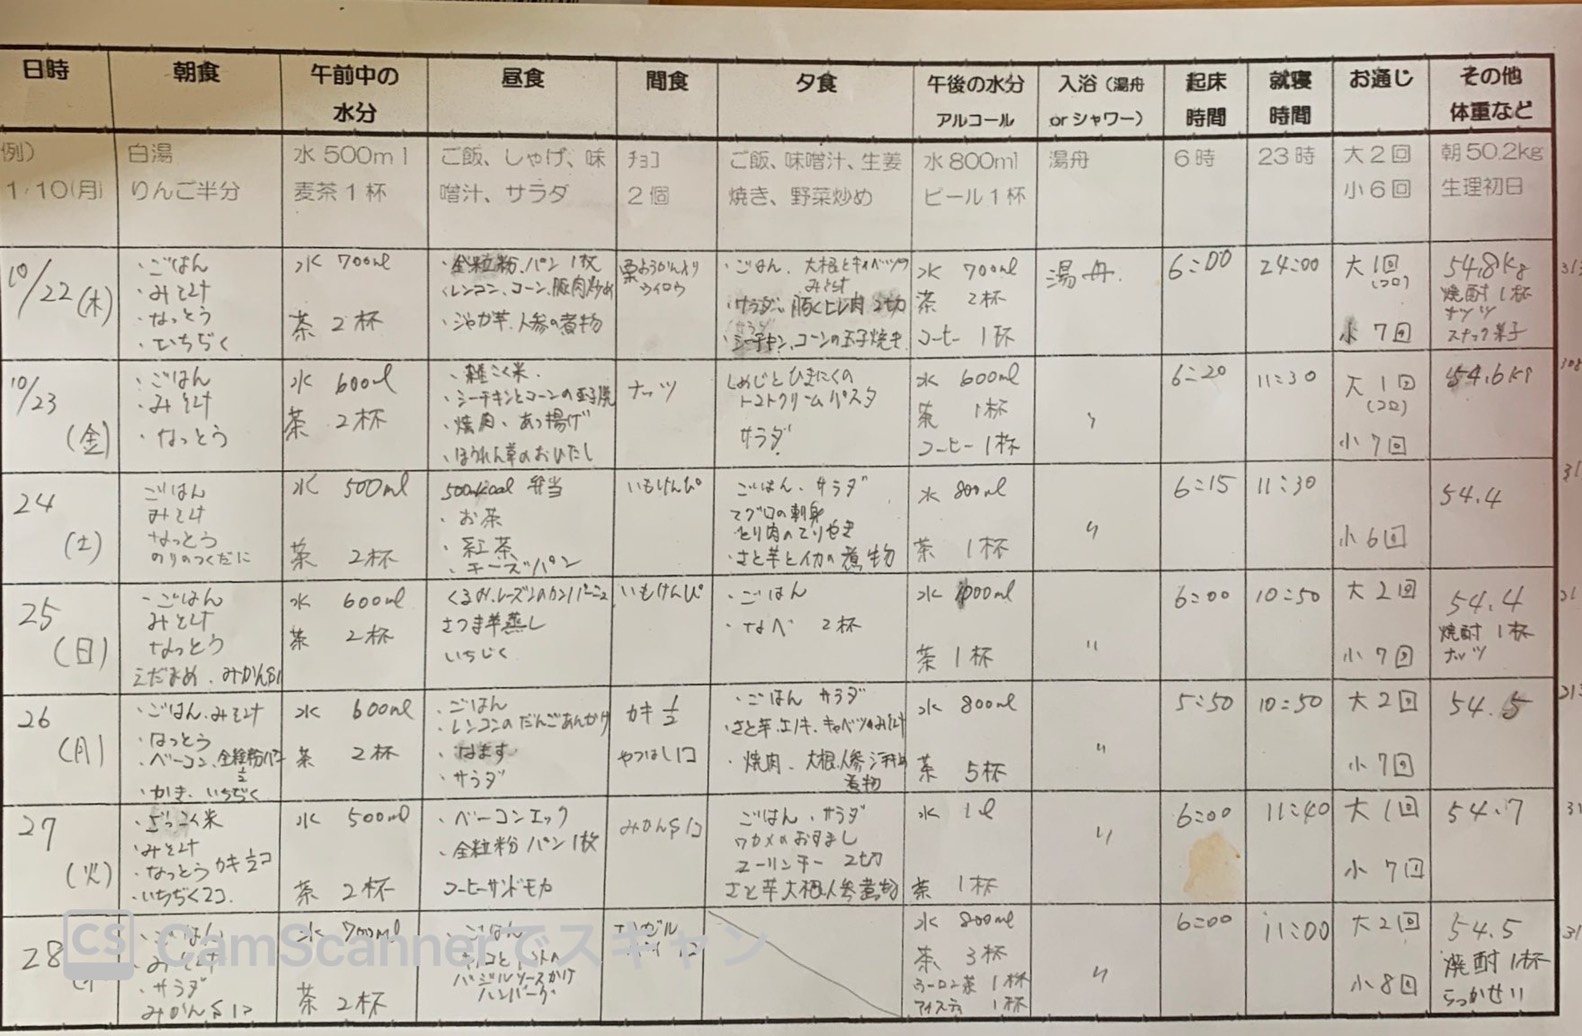 日時 朝食 午前中の水分 昼食 間食 夕食 午後の水分アルコール 入浴（湯舟orシャワー） 起床時間 就寝時間 お通じ その他体重など
例） 白湯 水500ml ご飯、しゃけ、味 チョコ ご飯、味噌汁、生姜 水800ml 湯舟 6時 23時 大2回 朝50.2kg
1/10(月) りんご半分 麦茶1杯 噌汁、サラダ 2個 焼き、野菜炒め ビール1杯 小6回 生理初日
10/22(木)
・ごはん
・みそ汁
・なっとう
・いちぢく
水 700ml
茶 2杯
・全粒粉パン 1枚
・レンコン、コーン、豚肉炒め
・じゃが芋、人参の煮物
栗ようかん入り
ウイロウ
・ごはん、大根とキャベツの
みそ汁
・サラダ、豚ヒレ肉 2切
・シーチキン、コーンの玉子焼き
水 700ml
茶 2杯
コーヒー 1杯
湯舟
6:00
24:00
大1回
(コロ)
小 7回
54.8kg
焼酎 1杯
ナッツ
スナック菓子
10/23
(金)
・ごはん
・みそ汁
・なっとう
水 600ml
茶 2杯
・雑こく米
・シーチキンとコーンの玉子焼
・焼肉、あつ揚げ
・ほうれん草のおひたし
ナッツ
しめじとひきにくの
トマトクリームパスタ
サラダ
水 600ml
茶 1杯
コーヒー 1杯
〃
6:20
11:30
大1回
(コロ)
小7回
54.6kg
24
(土)
ごはん
みそ汁
なっとう
のりのつくだに
水 500ml
茶 2杯
500kcal 弁当
・お茶
・紅茶
・チーズパン
いもけんぴ
ごはん、サラダ
マグロの刺身
とり肉のてりやき
・さと芋とイカの煮物
水 800ml
茶 1杯
〃
6:15
11:30
小6回
54.4
25
(日)
・ごはん
みそ汁
なっとう
えだまめ、みかん
水 600ml
茶 2杯
くるみ、レーズンのカンパーニュ
さつま芋蒸し
いちじく
いもけんぴ
・ごはん
・なべ 2杯
水
茶 1杯
〃
6:00
10:50
大2回
小7回
54.4
焼酎 1杯
ナッツ
26
(月)
・ごはん、みそ汁
・なっとう
・ベーコン、全粒粉パン
1/2
・かき、いちぢく
水 600ml
茶 2杯
・ごはん
・レンコンのだんごあんかけ
・なます
・サラダ
カキ 1/2
やつはし1コ
・ごはん サラダ
・さと芋、エノキ、キャベツのみそ汁
・焼肉、大根、人参
煮物
水 800ml
茶 5杯
〃
5:50
10:50
大2回
小7回
54.5
27
(火)
・ざっこく米
・みそ汁
・なっとう カキ1/2コ
・いちぢく2コ
水 500ml
茶 2杯
・ベーコンエッグ
・全粒粉パン 1枚
コーヒーサンドモカ
みかんS1コ
ごはん、サラダ
ワカメのおすまし
ユーリンチー 2切
さと芋大根人参煮物
水 1l
茶 1杯
〃
6:00
11:40
大1回
小7回
54.7
28
・ごはん
・みそ汁
・サラダ
みかんS1コ
水 700ml
茶 2杯
・ごはん
バジルソースがけ
ハンバーグ
水 800ml
茶 3杯
ウーロン茶 1杯
アイスティ 1杯
〃
6:00
11:00
大2回
小8回
54.5
焼酎 1杯
らっかせい
CS CamScannerでスキャン